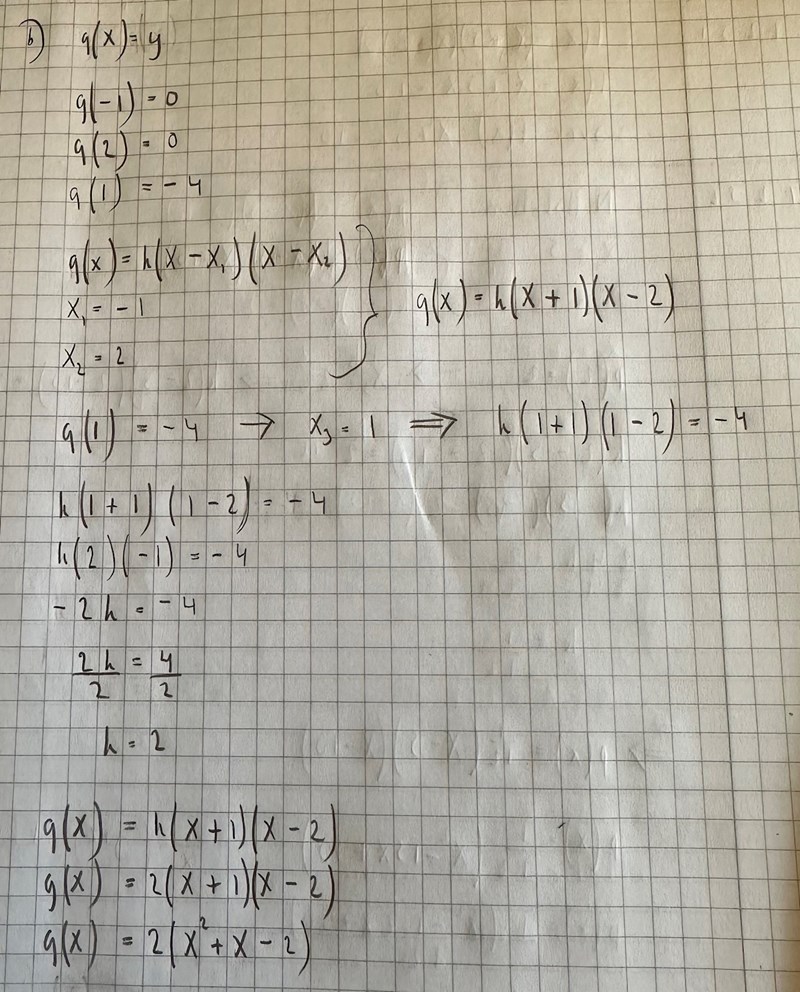 b) g(x) = y
g(-1) = 0
g(2) = 0
g(1) = -4
g(x) = h(x - x₁)(x - x₂)
x₁ = -1
x₂ = 2
g(x) = h(x + 1)(x - 2)
g(1) = -4 → x₃ = 1 ⇒ h(1+1)(1-2) = -4
h(1+1)(1-2) = -4
h(2)(-1) = -4
-2h = -4
2h/2 = 4/2
h = 2
g(x) = h(x+1)(x-2)
g(x) = 2(x+1)(x-2)
g(x) = 2(x²+x-2)